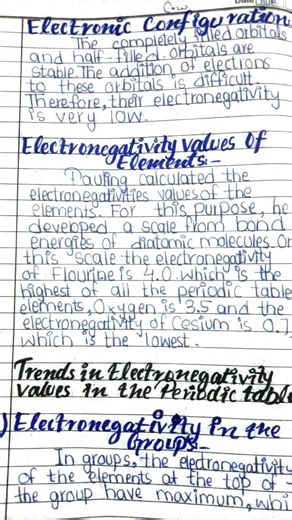 Electronic Configuration
The completely filled orbitals
and half-filled orbitals are
stable. The addition of electrons
to these orbitals is difficult.
Therefore, their electronegativity
is very low.
Electronegativity values Of
Elements:-
Pauling calculated the
electronegativities values of the
elements. For this purpose, he
developed a scale from bond
energies of diatomic molecules. On
this scale the electronegativity
of Flourine is 4.0. which is the
highest of all the periodic table
elements, Oxygen is 3.5 and the
electronegativity of Cesium is 0.7,
which is the lowest.
Trends in Electronegativity
values in the Periodic table
) Electronegativity in the
Groups:-
In groups, the electronegativity
of the elements at the top of
the group have maximum, whi